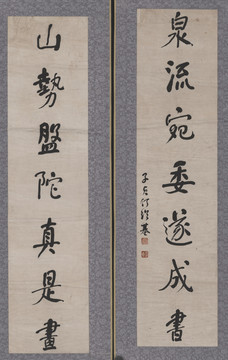 泉流宛委遂成書
子貞何紹基
山勢盤陀真是畫